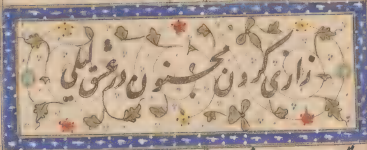 زاری کردن مجنون در عشق لیلی